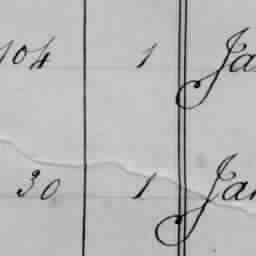 104 1 Ja
30 1 Jan